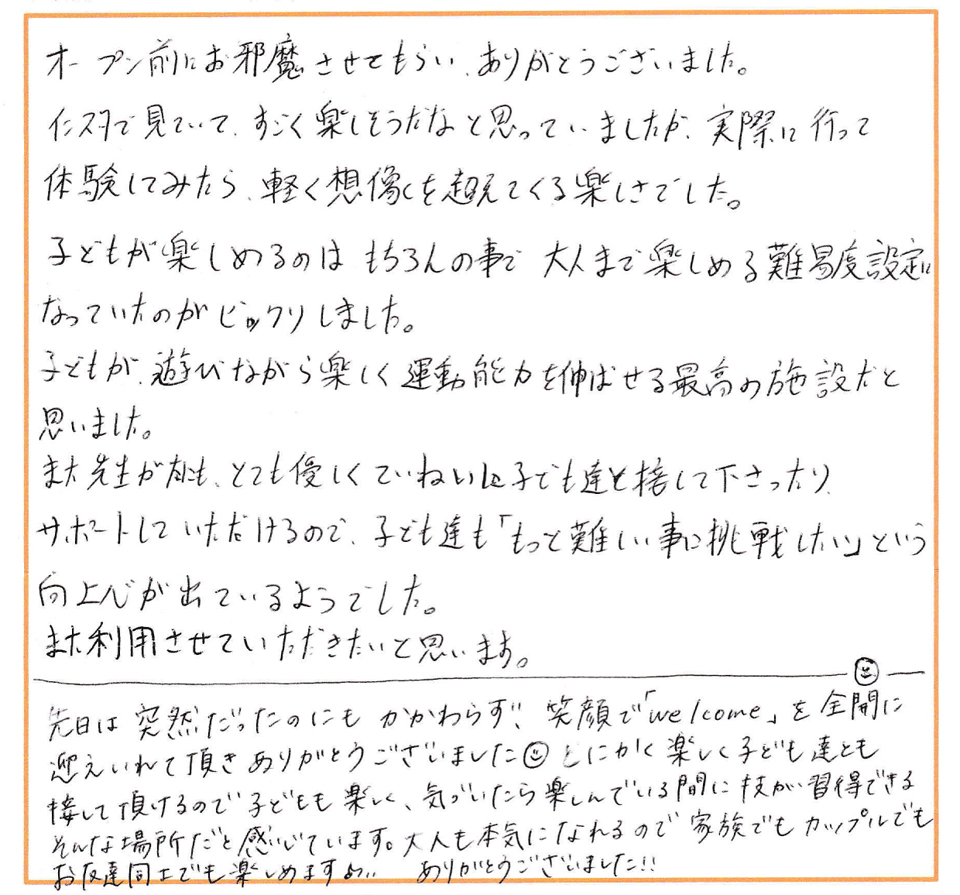 オープン前にお邪魔させてもらい、ありがとうございました。
インスタで見ていて、すごく楽しそうだなと思っていましたが、実際に行って
体験してみたら、軽く想像を超えてくる楽しさでした。
子どもが楽しめるのはもちろんの事で大人まで楽しめる難易度設定に
なっていたのがビックリしました。
子どもが、遊びながら楽しく運動能力を伸ばせる最高の施設だと
思いました。
また先生がたも、とても優しくていねいに子ども達と接して下さったり、
サポートしていただけるので、子ども達も「もっと難しい事に挑戦したい」という
向上心が出ているようでした。
また利用させていただきたいと思います。
先日は突然だったのにもかかわらず、笑顔で「welcome」を全開に
迎えいれて頂きありがとうございました☺とにかく楽しく子ども達とも
接して頂けるので子どもも楽しく、気づいたら楽しんでいる間に技が習得できる
そんな場所だと感じています。大人も本気になれるので家族でもカップルでも
お友達同士でも楽しめますね、、ありがとうございました!!